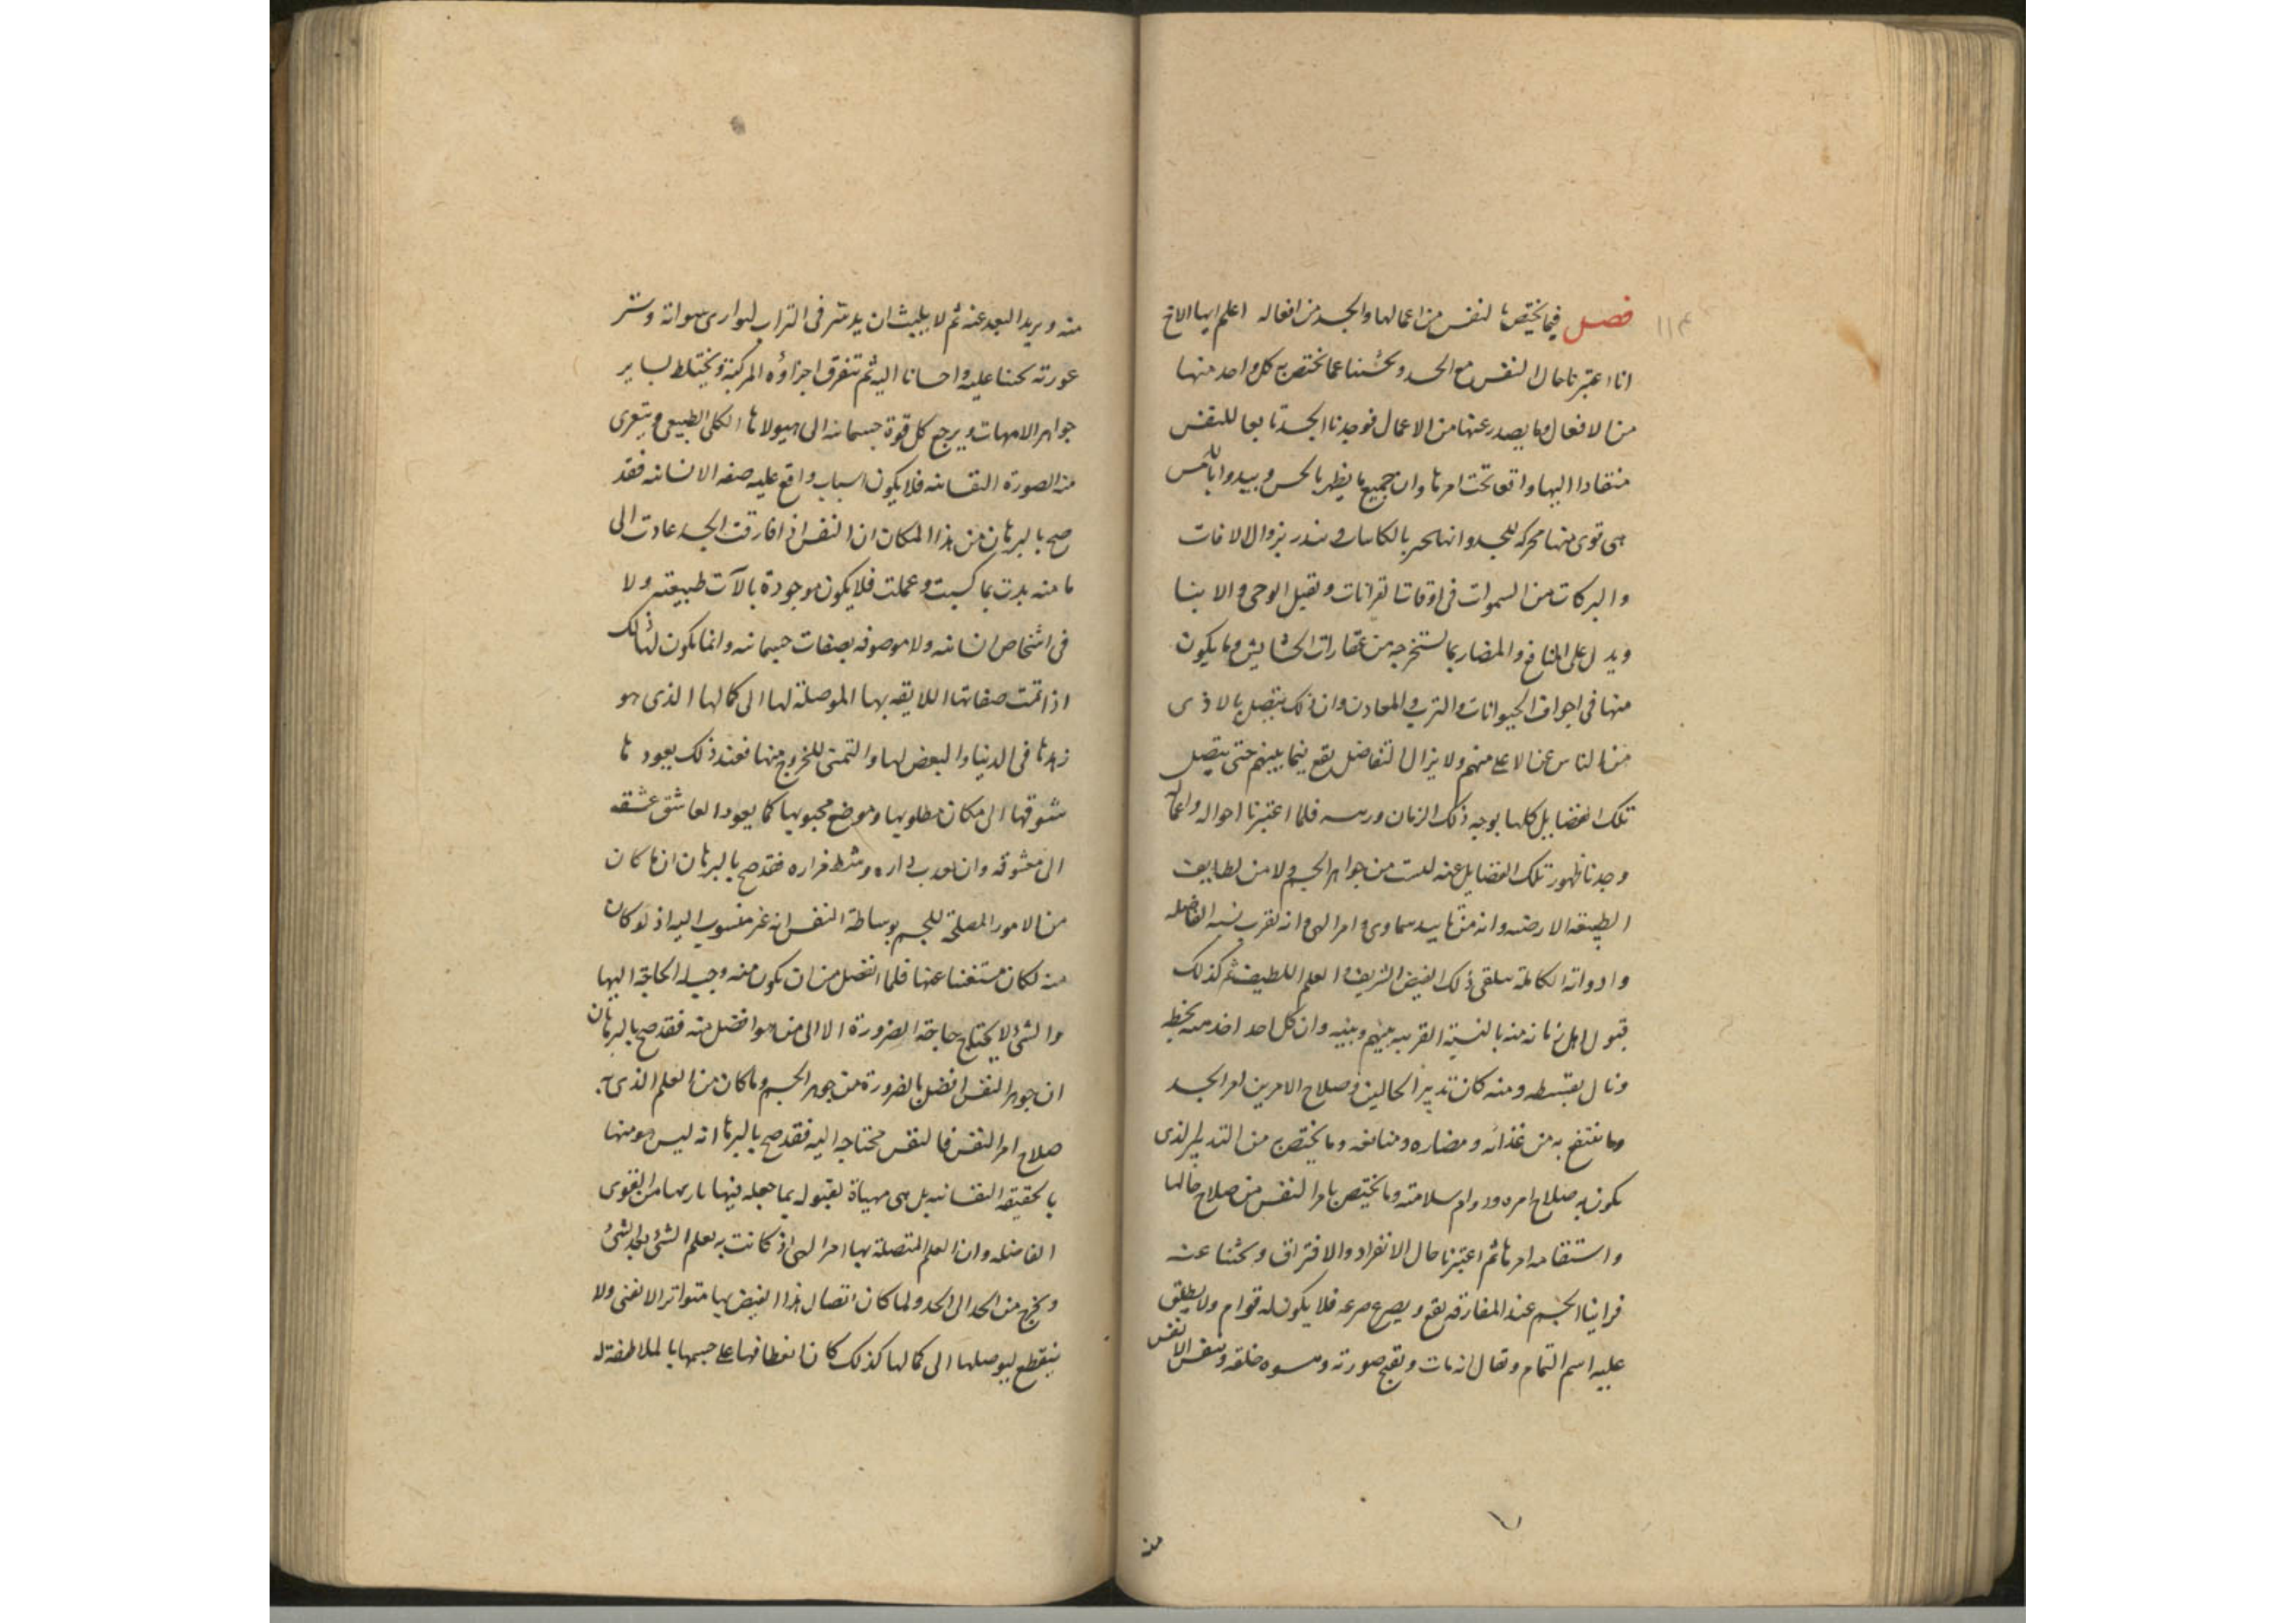 ١١٤
فصل فيما يختص بالنفس من اعمالها والجسد من افعاله اعلم ايها الاخ
انا اعتبرنا حال النفس مع الجسد وبحثنا عما يختص به كل واحد منها
من الافعال وما يصدر عنها من الاعمال فوجدنا الجسد تابعا للنفس
منقادا اليها واقعا تحت امرها وان جميع ما يظهر بالحس ويبدوا باللمس
هى قوى منها محركة للجسد وانها تخبر بالكاينات وتنذر بزوال الافات
والبركات من السموات فى اوقات القرانات وتقبل الوحى والانبا
ويدل على المنافع والمضار بما تستخرجه من عقارات الحشايش وما يكون
منها فى اجواف الحيوانات والترب والمعادن وان ذلك يتصل بالادنى
من الناس عن الاعلى منهم ولا يزال التفاضل يقع فيما بينهم حتى يتصل
تلك الفضايل كلها بوجه ذلك الزمان ورييسه فلما اعتبرنا احواله واعماله
وجدنا ظهور تلك الفضايل عنه ليست من جواهر الجسم ولا من لطايف
الطبيعة الارضية وانه من تاييد سماوى وامر الهى وانه بقرب نسبه الفاضله
وادواته الكاملة يتلقى ذلك الفيض الشريف والعلم اللطيف ثم كذلك
قبول اهل زمانه منه بالنسبة القريبة بينهم وبينه وان كل احد اخذ منه بحظه
ونال بقسطه ومنه كان تدبير الحالين وصلاح الامرين امر الجسد
وما ينتفع به من غذائه ومضاره ومنافعه وما يختص به من التدبير الذى
يكون به صلاح امره ودوام سلامته وما يختص بامر النفس من صلاح حالها
واستقامة امرها ثم اعتبرنا حال الانفراد والافتراق وبحثنا عنه
فراينا الجسم عند المفارقة يقع ويصرع صرعه فلا يكون له قوام ولا يطلق
عليه اسم التمام ويقال انه مات ويقبح صورته خلقه وتنفر الانفس
منه
منه ويريد البعد عنه ثم لا يلبث ان يدثر فى التراب ليوارى سواته وستر
عورته تحننا عليه واحسانا اليه ثم تتفرق اجزاؤه المركبة ويختلط بساير
جواهر الامهات ويرجع كل قوة جسمانية الى هيولاها الكلى الطبيعى ويتعرى
من الصورة النفسانية فلا يكون اسباب واقع عليه صفه الانسانيه فقد
صح بالبرهان من هذا المكان ان النفس اذا فارقت الجسد عادت الى
ما منه بدت بما كسبت وعملت فلا يكون موجودة بالآت طبيعته ولا
فى اشخاص انسانيه ولا موصوفه بصفات جسمانيه وانما يكون لها ذلك
اذا تمت صفاتها اللايقه بها الموصلة لها الى كمالها الذى هو
زهدها فى الدنيا والبغض لها والتمنى للخروج منها فعند ذلك يعود بها
شوقها الى مكان مطلوبها وموضع محبوبها كما يعود العاشق عشقه
الى معشوقه وان بعدت داره وشط مزاره فقد صح بالبرهان ان ما كان
من الامور المصلحة للجسم بوساطة النفس انه غير منسوب اليه اذ لو كان
منه لكان مستغنيا عنها فلما انفصل من ان يكون منه وجب له الحاجة اليها
والشئ لا يحتاج حاجة الضرورة الا الى من هو افضل منه فقد صح بالبرهان
ان جوهر النفس افضل بالضرورة من جوهر الجسم وما كان من العلم الذى به
صلاح امر النفس فالنفس محتاجه اليه فقد صح بالبرهان انه ليس هو منها
بالحقيقة النفسانيه بل هى مهياة لقبوله بما جعله فيها باريها من القوى
الفاضله وان العلم المتصلة بها امر الهى اذ كانت به تعلم الشئ بعد الشئ
ويخرج من الحد الى الحد ولما كان اتصال هذا الفيض بها متواترا لا يفنى ولا
ينقطع ليوصلها الى كمالها كذلك كان انعطافها على جسمها بالملاطفة له